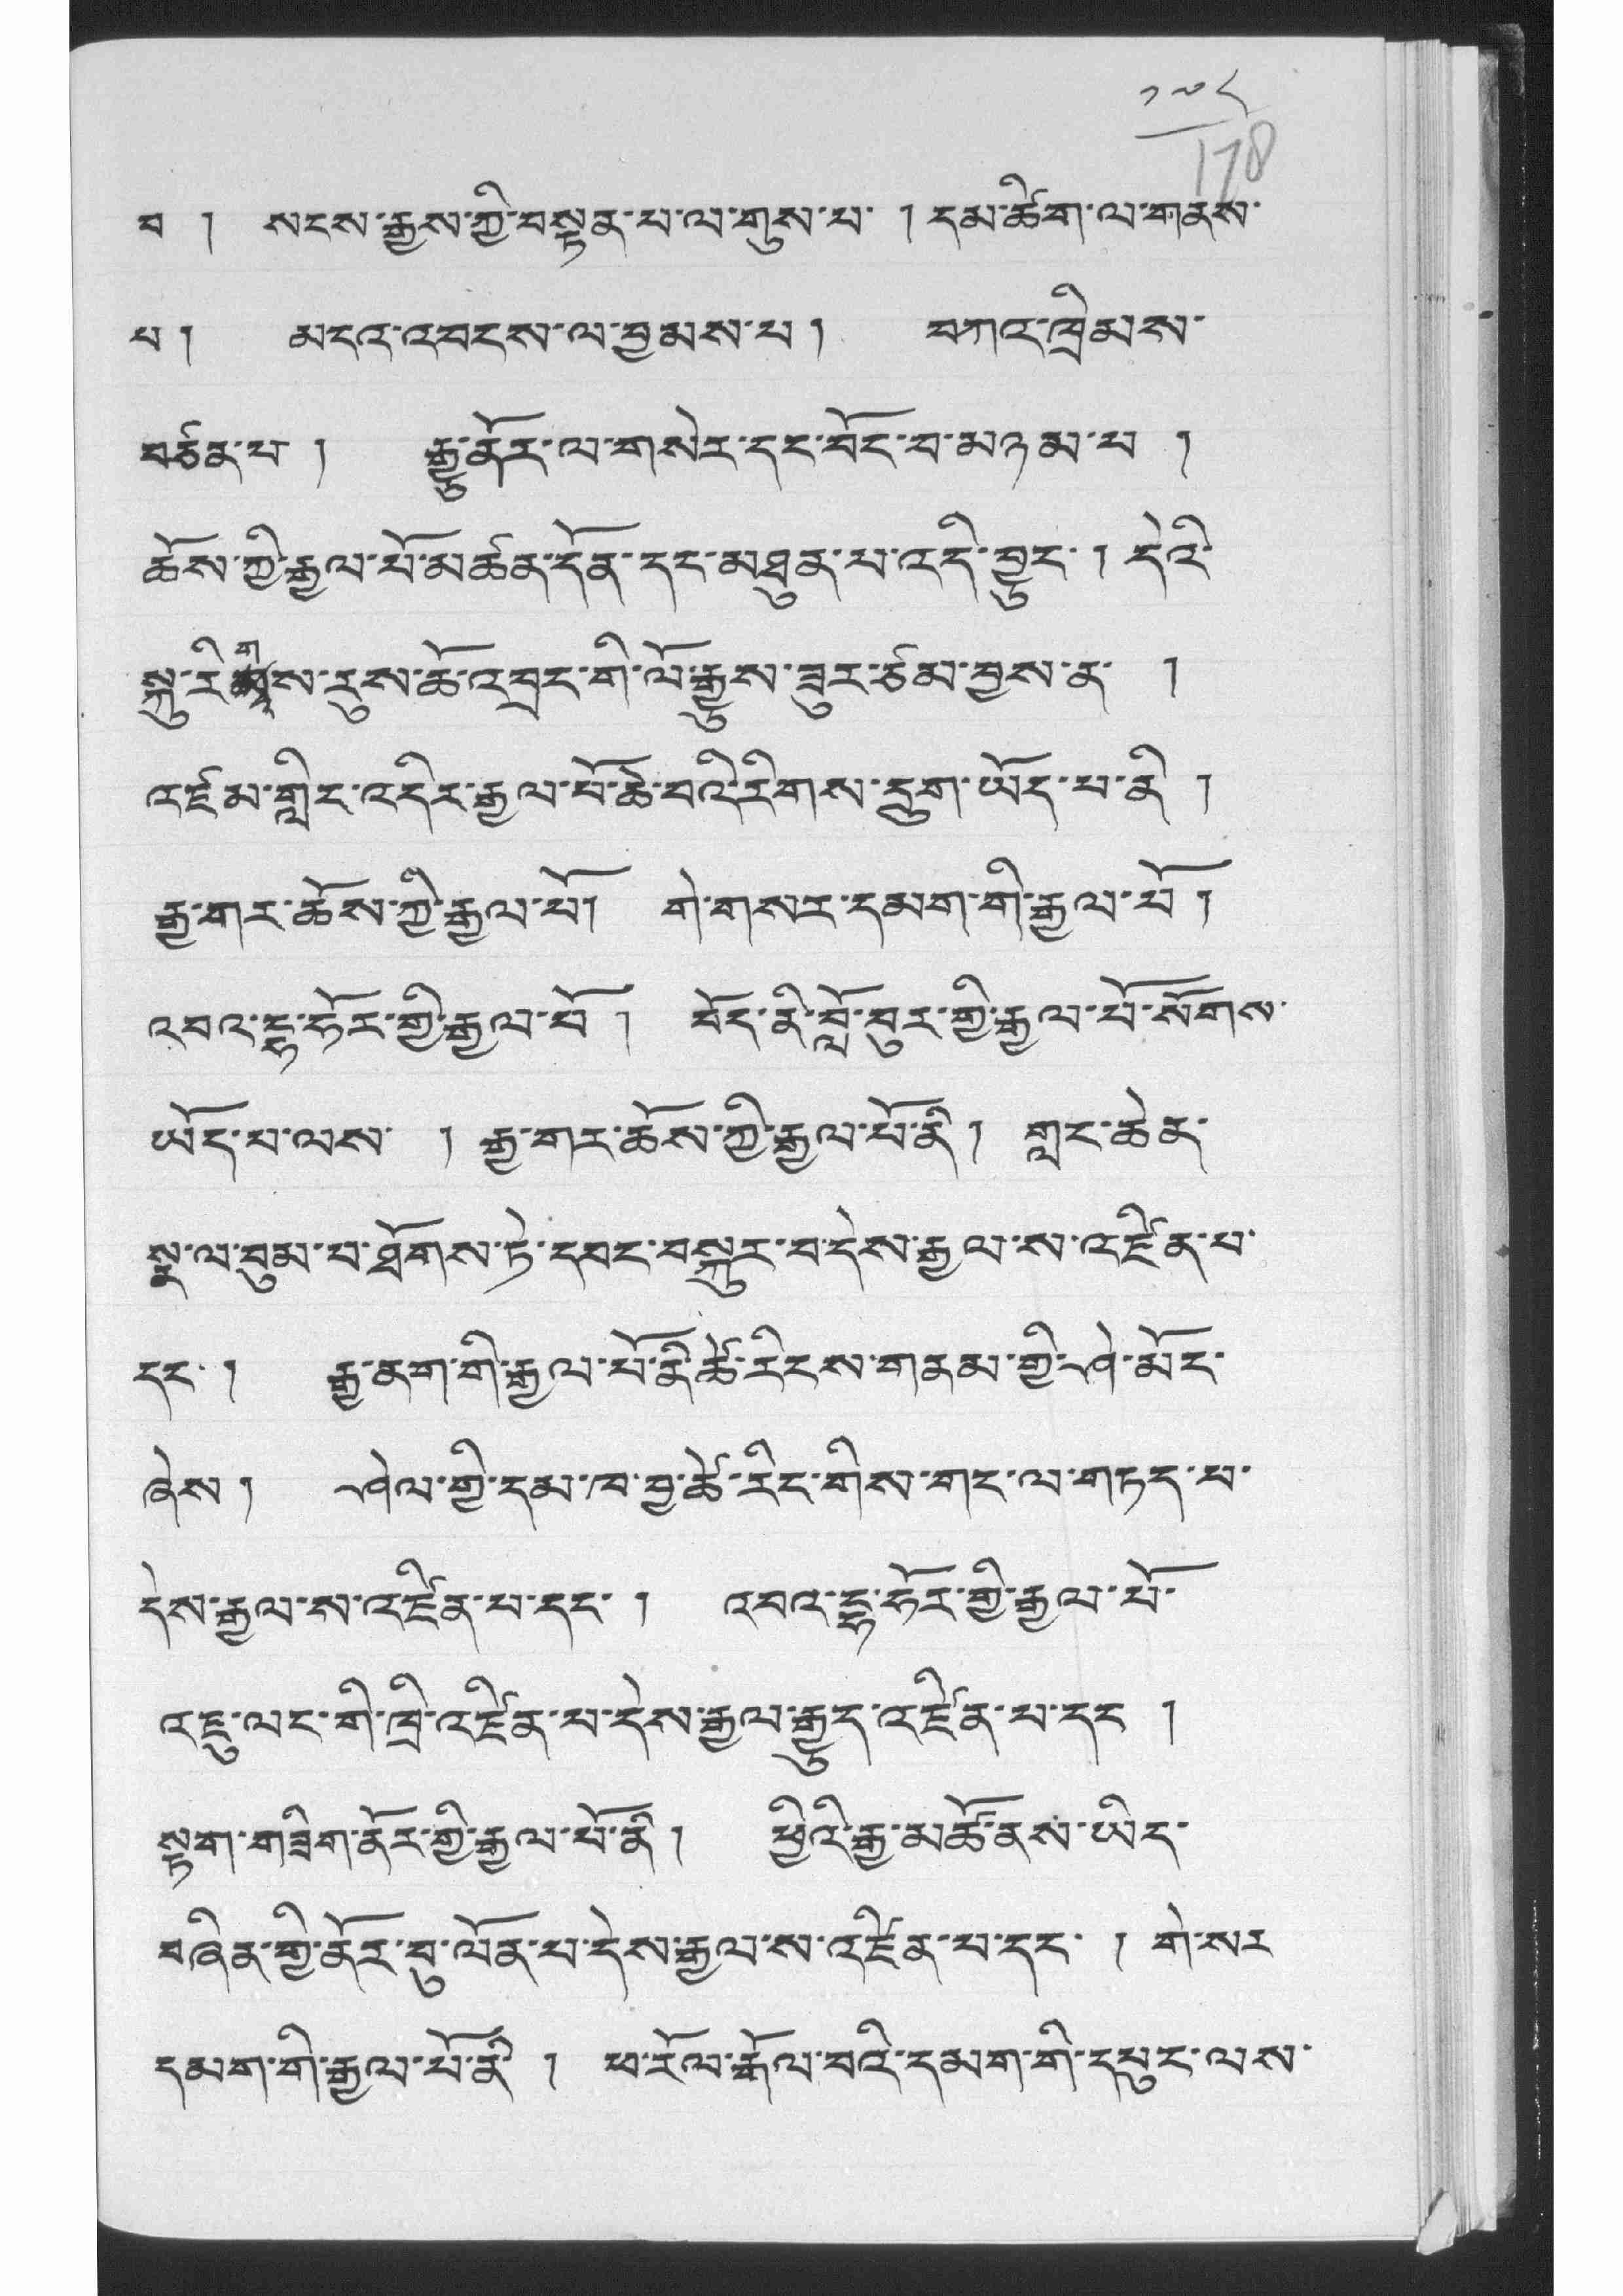 ༡༧༨
178
བ། སངས་རྒྱས་ཀྱི་བསྟན་པ་ལ་གུས་པ་། དམ་ཚིག་ལ་གནས་
པ། མངའ་འབངས་ལ་བྱམས་པ། བཀའ་ཁྲིམས་
བཙན་པ། རྒྱུ་ནོར་ལ་གསེར་དང་བོང་བ་མཉམ་པ།
ཆོས་ཀྱི་རྒྱལ་པོ་མཚན་དོན་དང་མཐུན་པ་འདི་བྱུང་། དེའི་
སྐུ་རིགས་རུས་ཆོ་འབྲང་གི་ལོ་རྒྱུས་ཟུར་ཙམ་བྱས་ན་།
འཛམ་གླིང་འདིར་རྒྱལ་པོ་ཆེ་བའི་རིགས་དྲུག་ཡོད་པ་ནི།
རྒྱ་གར་ཆོས་ཀྱི་རྒྱལ་པོ། གེ་གསར་དམག་གི་རྒྱལ་པོ།
འབའ་ཌ་ཧོར་གྱི་རྒྱལ་པོ། བོད་ནི་བློ་བུར་གྱི་རྒྱལ་པོ་སོགས་
ཡོད་པ་ལས་། རྒྱ་གར་ཆོས་ཀྱི་རྒྱལ་པོ་ནི། གླང་ཆེན་
སྣ་ལ་བུམ་པ་ཐོགས་ཏེ་དབང་བསྐུར་བ་དེས་རྒྱལ་ས་འཛིན་པ་
དང་། རྒྱ་ནག་གི་རྒྱལ་པོ་ནི་ཚེ་རིངས་གནམ་གྱི་ཤེ་མོང་
ཞེས། ཤེལ་གྱི་དམ་ཁ་བྱ་ཚེ་རིང་གིས་གང་ལ་གཏད་པ་
དེས་རྒྱལ་ས་འཛིན་པ་དང་། འབའ་ཌ་ཧོར་གྱི་རྒྱལ་པོ་
འཇུ་ལང་གི་ཁྲི་འཛིན་པ་དེས་རྒྱལ་རྒྱུད་འཛིན་པ་དང།
སྟག་གཟིག་ནོར་གྱི་རྒྱལ་པོ་ནི། ཕྱིའི་རྒྱ་མཚོ་ནས་ཡིད་
བཞིན་གྱི་ནོར་བུ་ལོན་པ་དེས་རྒྱལ་ས་འཛིན་པ་དང་། གེ་སར
དམག་གི་རྒྱལ་པོ་ནི། ཕ་རོལ་རྒོལ་བའི་དམག་གི་དཔུང་ལས་